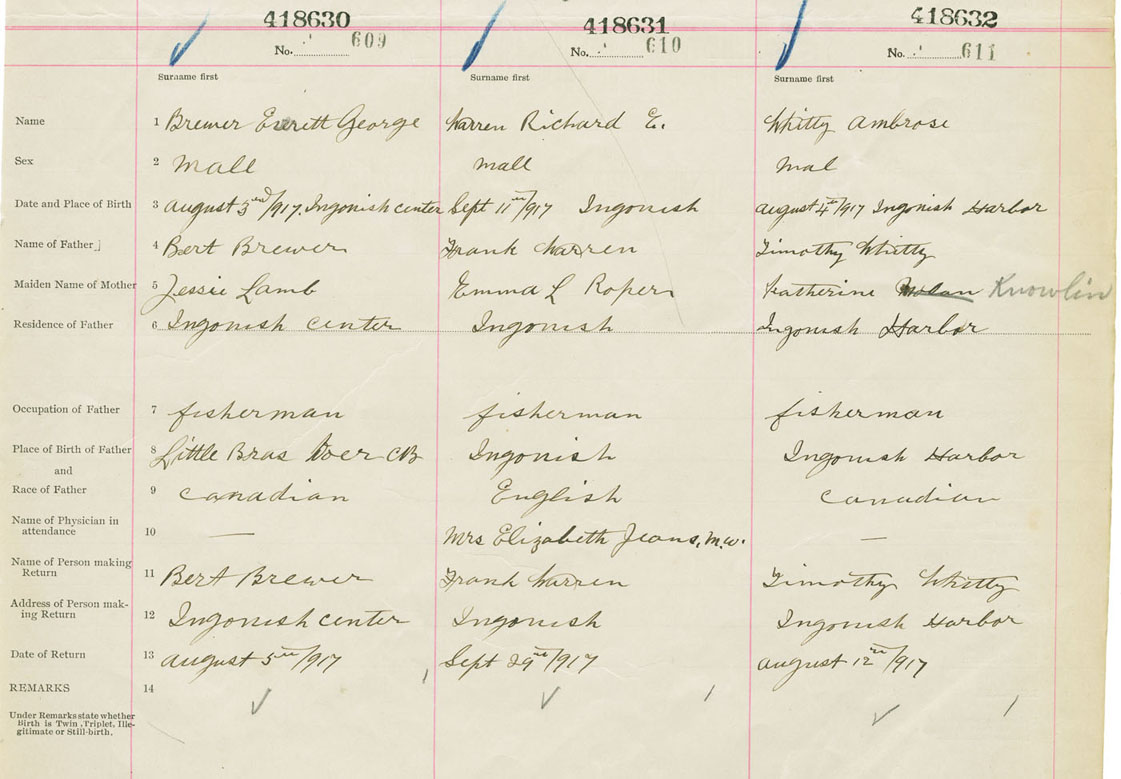 418630 418631 418632
No. 609 No. 610 No. 611
Surname first Surname first Surname first
Name 1 Brewer Everett George Warren Richard E. Whitty Ambrose
Sex 2 Mall mall mal
Date and Place of Birth 3 august 3rd/917, Ingonish center Sept 11th/917 Ingonish august 4th/917 Ingonish Harbor
Name of Father 4 Bert Brewer Frank Warren Timothy Whitty
Maiden Name of Mother 5 Jessie Lamb Emma L Roper Katherine Nolan Knowlin
Residence of Father 6 Ingonish center Ingonish Ingonish Harbor
Occupation of Father 7 fisherman fisherman fisherman
Place of Birth of Father 8 Little Bras Doer CB Ingonish Ingonish Harbor
and
Race of Father 9 canadian English canadian
Name of Physician in
attendance 10 — Mrs Elizabeth Jeans, M.W. —
Name of Person making
Return 11 Bert Brewer Frank Warren Timothy Whitty
Address of Person mak-
ing Return 12 Ingonish center Ingonish Ingonish Harbor
Date of Return 13 august 5th/917 Sept 29th/917 august 12th/917
REMARKS 14
Under Remarks state whether
Birth is Twin, Triplet, Ille-
gitimate or Still-birth.